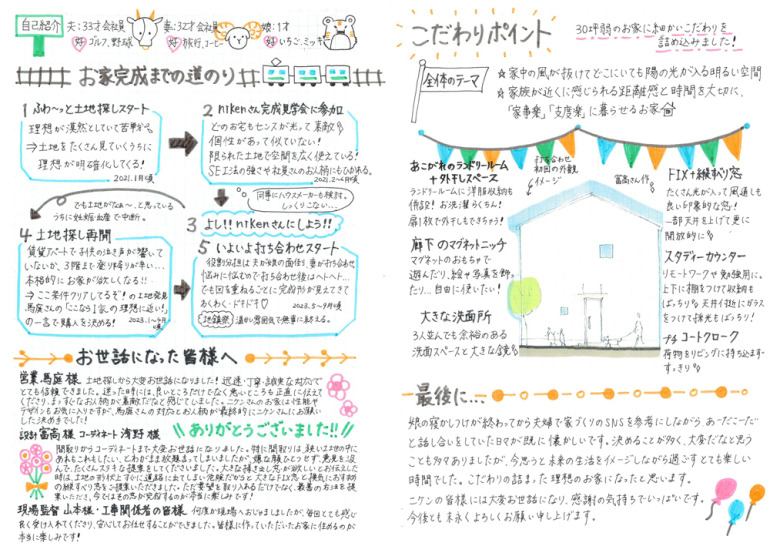 自己紹介
夫:33才会社員
好 ゴルフ、野球
妻:32才会社員
好 旅行、コーヒー
娘:1才
好 いちご、ミッキー
お家完成までの道のり
1 ふわ〜っと土地探しスタート
理想が漠然としていて苦戦
⇒土地をたくさん見ていくうちに
理想が明確化してくる!
2021.1月頃
2 nikenさん完成見学会に参加
どのお宅もセンスが光って素敵
個性があって似ていない!
限られた土地で空間を広く使えている!
SE工法の強さや社員さんのお人柄にもひかれる。
2021.2〜6月頃
でも土地がなぁ〜、と思っている
うちに妊娠出産で中断。
同時にハウスメーカーも検討。
しっくりこない…
3 よし!!nikenさんにしよう!!
4 土地探し再開
賃貸アパートで子供の泣き声が響いて
いないか、3階まで登り降りが辛い…
本格的にお家が欲しくなる!!
⇒ここ条件クリアしてるぞ!の土地発見
馬庭さんの「こなら1家の理想に近い!」
の一言で購入を決める!
2023.1〜4月頃
5 いよいよ打ち合わせスタート
役割分担は夫が娘の面倒を、妻が打ち合わせ
悩みに悩むので打ち合わせ後はヘトヘト…
でも回を重ねるごとに完成形が見えてきて
わくわく・ドキドキ♡
2023.5〜9月頃
地鎮祭 温かい雰囲気で無事に終える。
お世話になった皆様へ
営業 馬庭様 土地探しから大変お世話になりました!迅速・丁寧・誠実な対応で
とても信頼できました。迷った時には、良いところだけでなく悪いところも正直に伝えて
くださり、まっすぐなお人柄が素敵だなと感じていました。ニケンさんのお家は性能も
デザインもお気に入りですが、馬庭さんの対応とお人柄が最終的にニケンさんにお願い
した決めてでした!
設計 富高様 コーディネート 浅野様
ありがとうございました!!
間取りからコーディネートまで大変お世話になりました。特に間取りは、狭い土地の中に
あれもこれもしたい、とわがまま放題言ってしまいましたが、嫌な顔ひとつせず、意見を汲
んで、たくさんステキな提案をしてくださいました。大きな掃き出し窓が欲しいとお伝えした
時は、土地の形状上すぐに道路に出てしまい危険だからと大きなFIX窓と換気におすすめ
の縦すべり窓をご提案いただきました。ただ要望を取り入れるだけでなく、最善の方法を提
案いただき、今ではもう窓が完成するのが本当に楽しみです!
現場監督 山本様・工事関係者の皆様 何度か現場へおじゃましましたが、毎回とても感じ
良く受け入れてくださり、安心してお任せすることができました。皆様に作っていただいたお家に住めるのが
本当に楽しみです!
こだわりポイント
30坪弱のお家に細かいこだわりを
詰め込みました!
全体のテーマ
☆家中の風が抜けてどこにいても陽の光が入る明るい空間
☆家族が近くに感じられる距離感と時間を大切に、
「家事楽」「支度楽」に暮らせるお家
あこがれのランドリールーム
+外干しスペース
ランドリールームに洋服収納も
併設!お洗濯らくちん!
扉1枚で外干しもできちゃう!
廊下のマグネットニッチ
マグネットのおもちゃで
遊んだり、絵や写真を飾っ
たり…自由に使いたい!
大きな洗面所
3人並んでも余裕のある
洗面スペースと大きな鏡
打ち合わせ
初回の外観
イメージ
富高さん作
FIX+縦すべり窓
たくさん光が入って風通しも
良い印象的な窓!
一部天井を上げて更に
開放的に
スタディーカウンター
リモートワークや勉強用に。
上下に棚をつけて収納も
ばっちり 天井付近にガラス
をつけて採光もばっちり!
プチコートクローク
荷物をリビングに持ち込まず
すっきり
最後に…
娘の寝かしつけが終わってから夫婦で家づくりのSNSを参考にしながら、あーだこーだ
と話し合いをしていた日々が既に懐かしいです。決めることが多く、大変だなと思う
ことも多々ありましたが、今思うと未来の生活をイメージしながら過ごすとても楽しい
時間でした。こだわりの詰まった理想のお家になったと思います。
ニケンの皆様には大変お世話になり、感謝の気持ちでいっぱいです。
今後とも末永くよろしくお願い申し上げます。